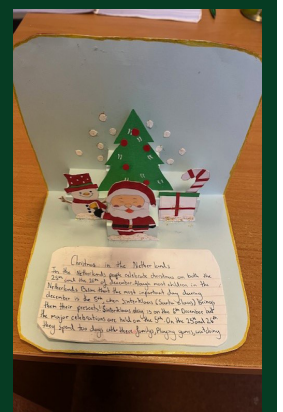 Christmas in the Netherlands
In the Netherlands people celebrate christmas on both the
25th and the 26th of December. Though most children in the
Netherlands that the most important day during
december is the 5th, when Sinterklaas (Santa Klaus) Brings
them their presents! Sinterklaas day is on the 6th December but
the major celebrations are held on the 5th. On the 25th and 26th
they spend two days with there family, Playing games, watching